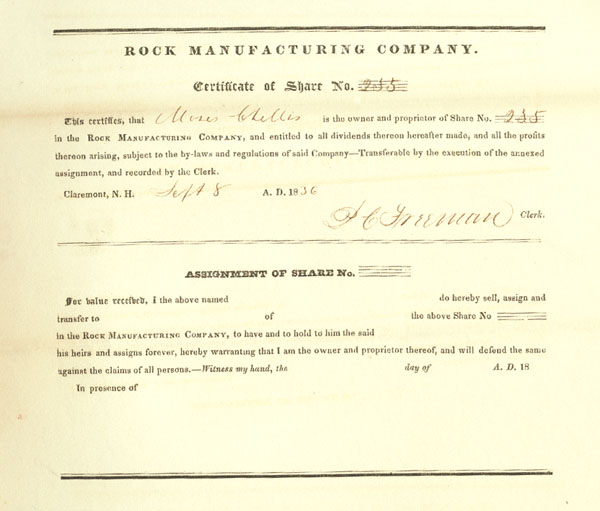 ROCK MANUFACTURING COMPANY.
Certificate of Share No. 235
This certifies, that Moses Chellis is the owner and proprietor of Share No. 235
in the ROCK MANUFACTURING COMPANY, and entitled to all dividends thereon hereafter made, and all the profits
thereon arising, subject to the by-laws and regulations of said Company—Transferable by the execution of the annexed
assignment, and recorded by the Clerk.
Claremont, N. H. Sept 8 A. D. 1836
F C Freeman Clerk.
ASSIGNMENT OF SHARE No.
For value received, I the above named do hereby sell, assign and
transfer to of the above Share No
in the ROCK MANUFACTURING COMPANY, to have and to hold to him the said
his heirs and assigns forever, hereby warranting that I am the owner and proprietor thereof, and will defend the same
against the claims of all persons.—Witness my hand, the day of A. D. 18
In presence of